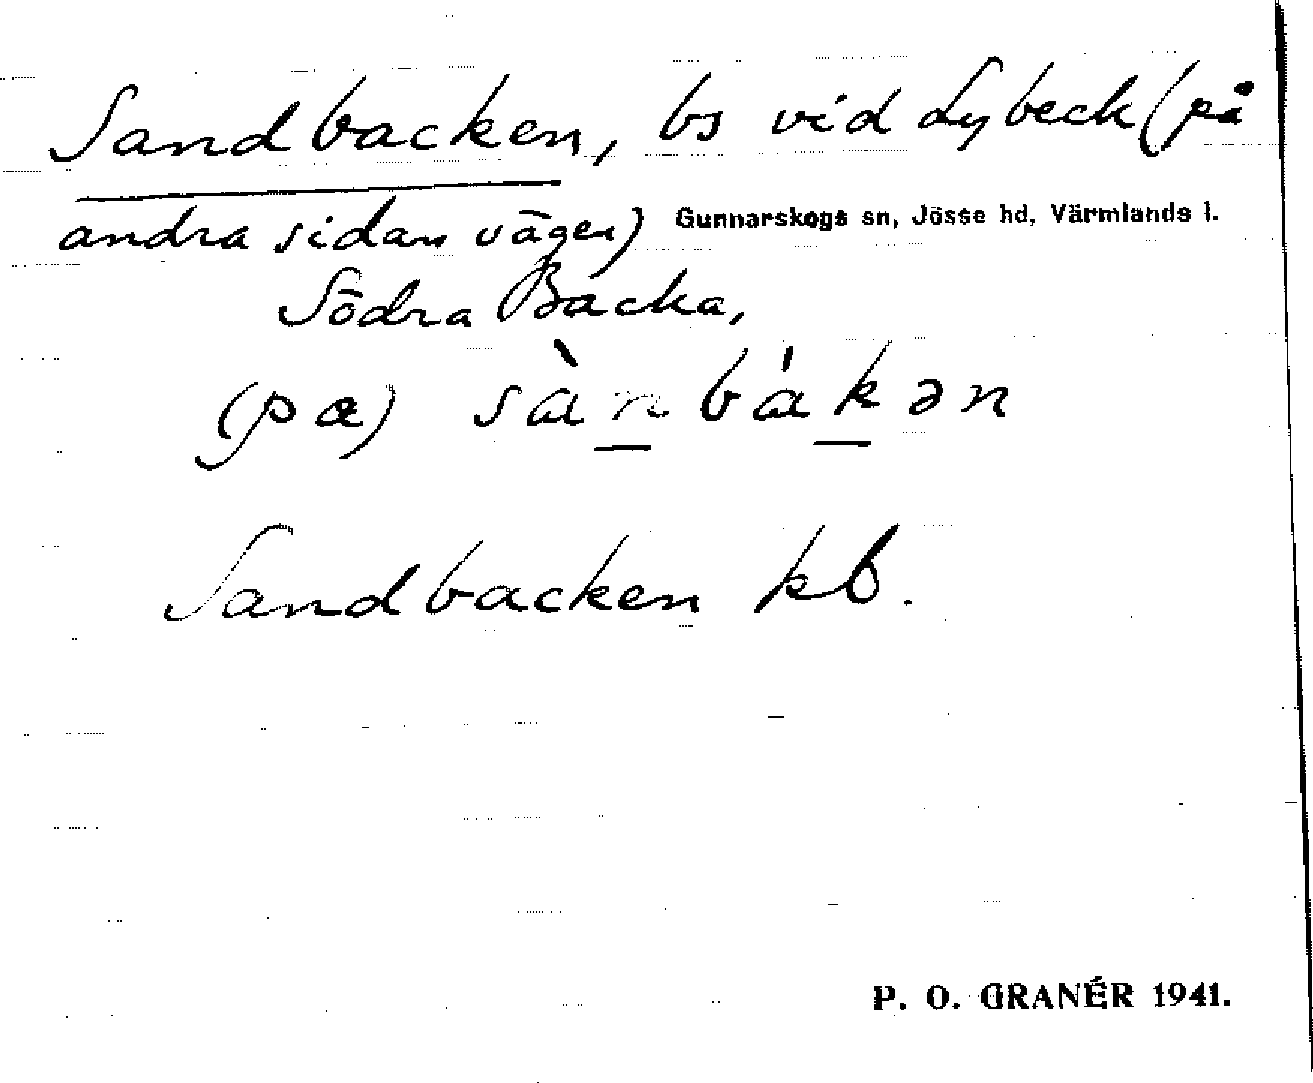 Sandbacken, bs vid Lybeck (på
andra sidan vägen) Gunnarskogs sn, Jösse hd, Värmlands l.
Södra Backa,
(pæ) sàn̲bák̲ən
Sandbacken kb.
P. O. GRANÉR 1941.